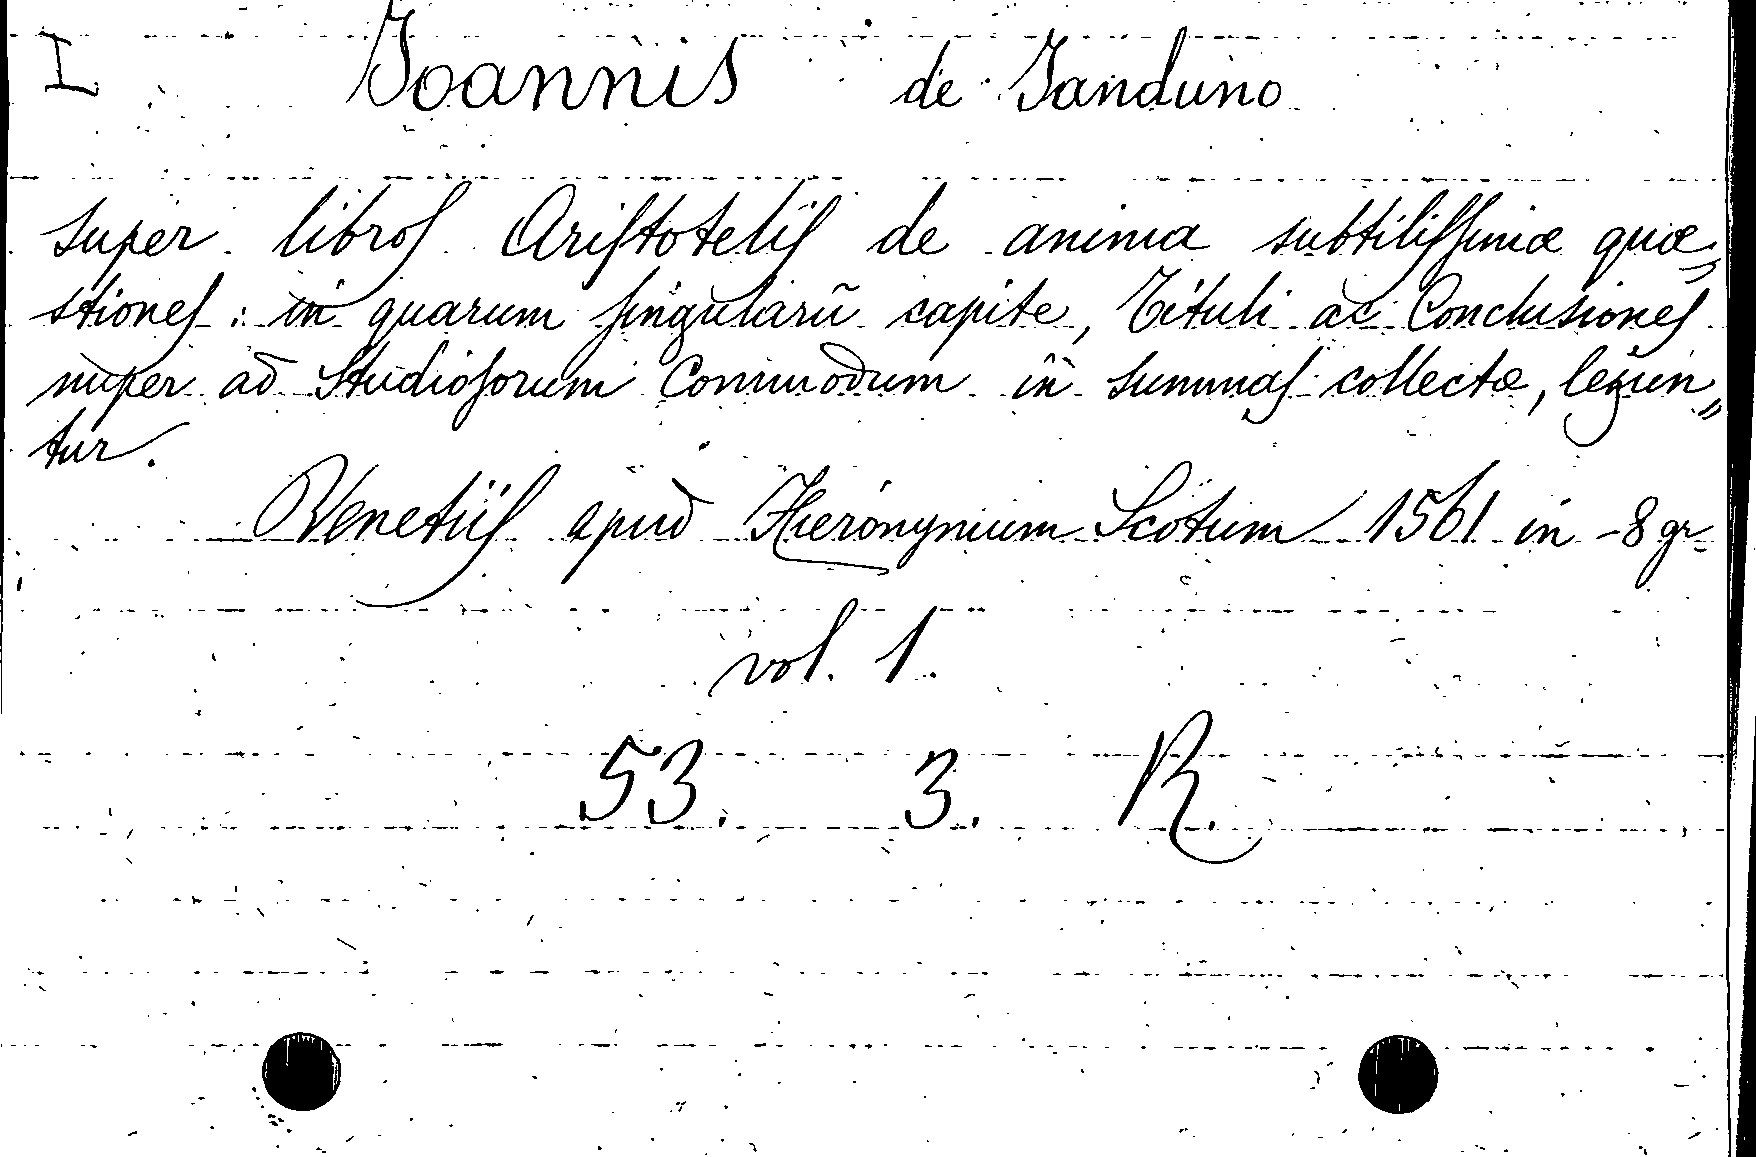 I Joannis de Janduno
super libros Aristotelis de anima subtilissimæ quæ„
stiones: in quarum singularũ capite, Tituli ac Conclusiones
nuper ad Studiosorum Commodum in summas collectæ, legun„
tur.
Venetiis apud Hieronymum Scotum 1561 in-8 gr.
vol. 1.
53. 3. R.